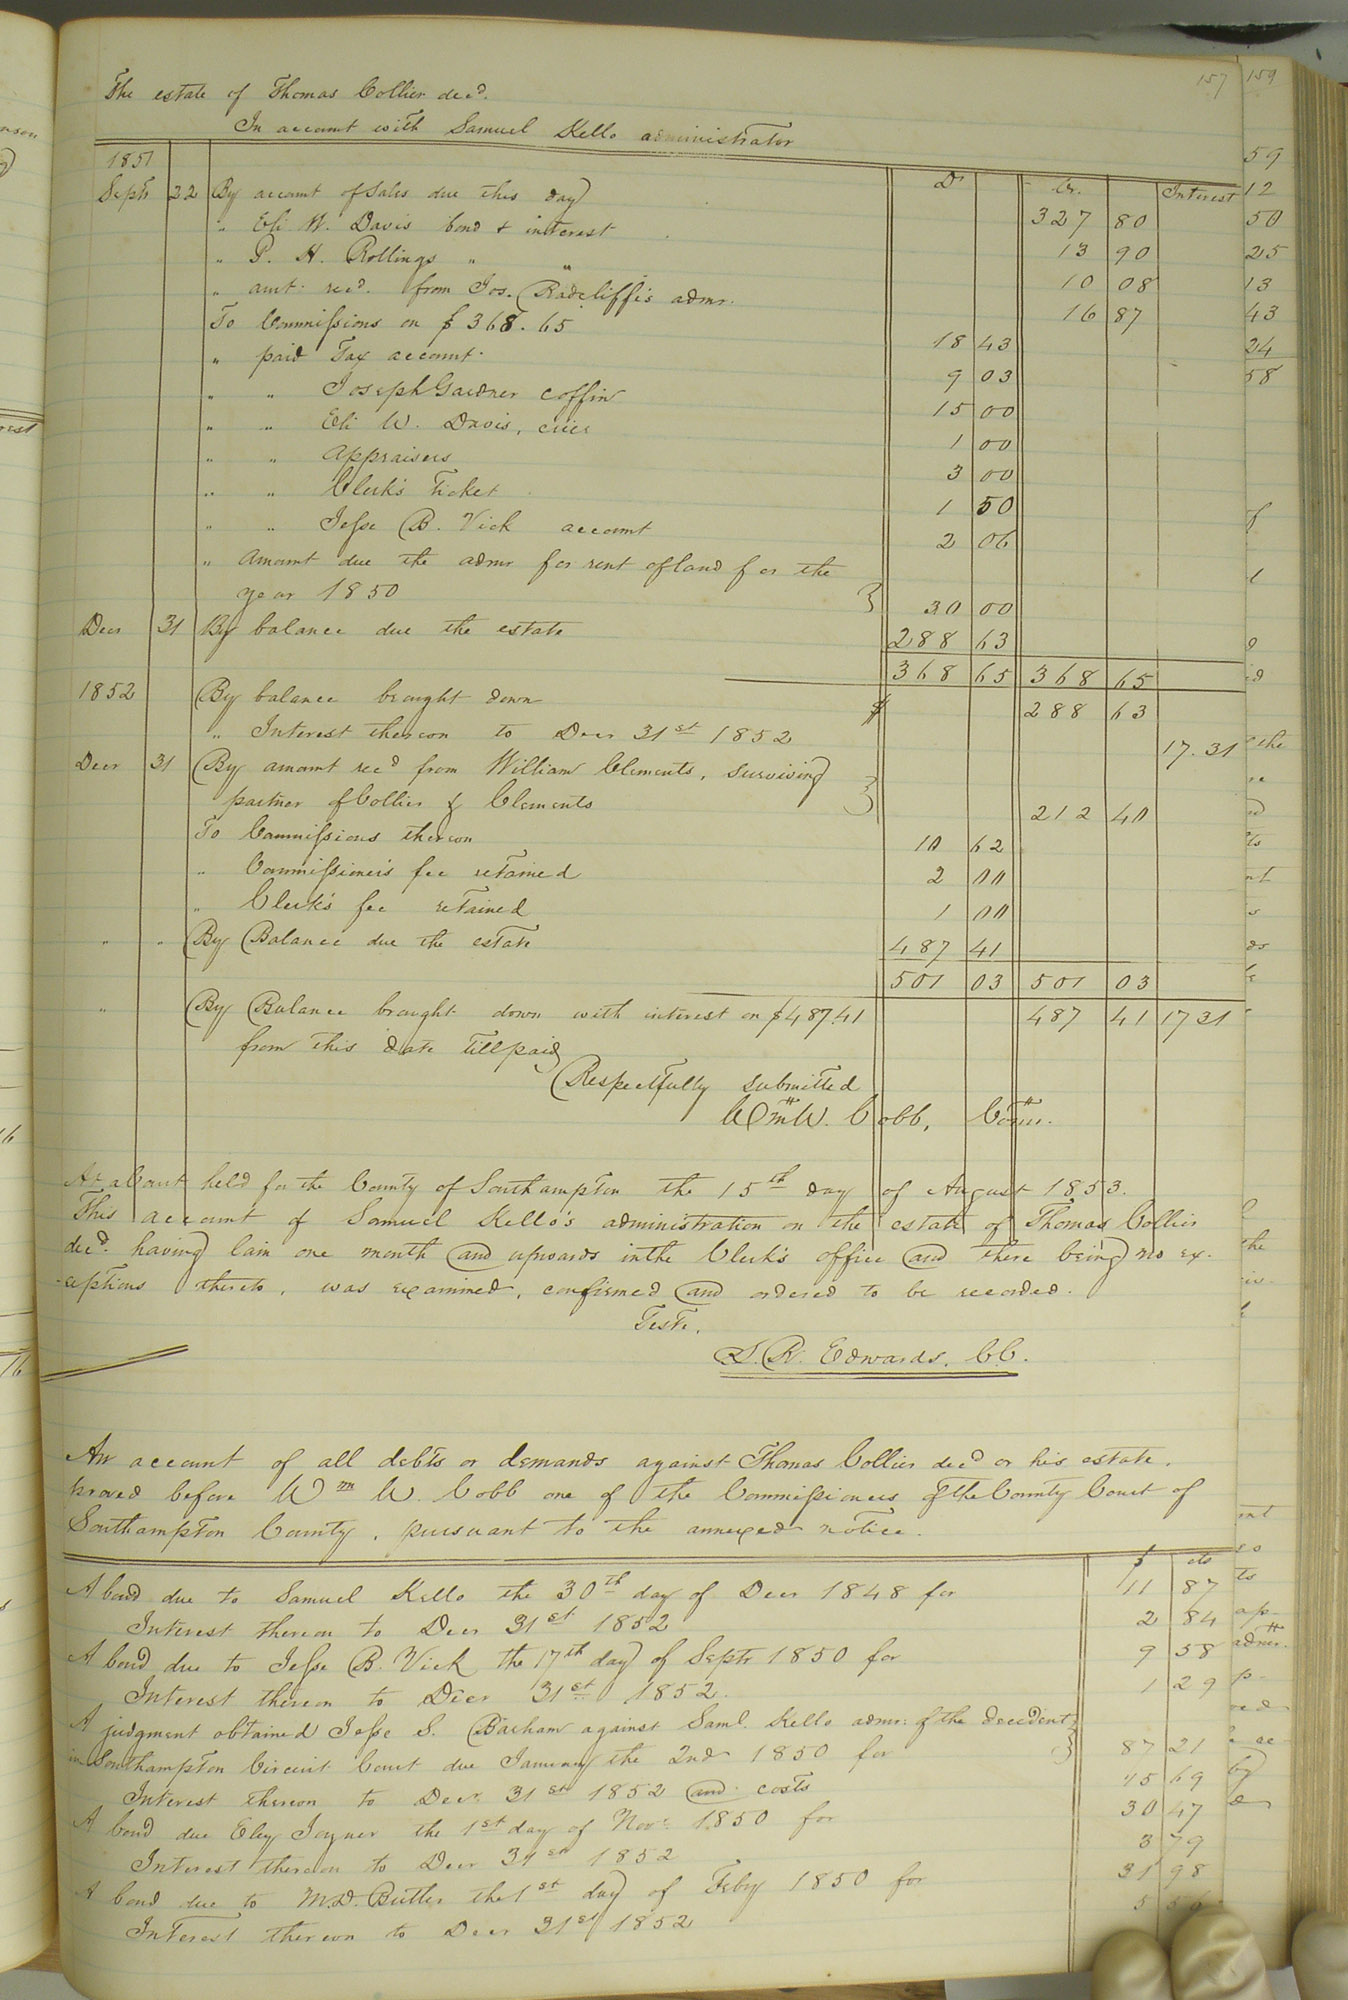 157 159
The estate of Thomas Collier decd.
In account with Samuel Kello administrator
1851 Dr Cr. Interest
Septr 22 By account of Sales due this day 327 80
" Eli W. Davis bond & interest 13 90
" P. H. Rollings " " 10 08
" amt. recd. from Jos. Radcliff's admr. 16 87
To Commissions on $368.65 18 43
" paid Tax account 9 03
" " Joseph Gardner coffin 15 00
" " Eli W. Davis, crier 1 00
" " Appraisers 3 00
" " Clerk's Ticket 1 50
" " Jesse B. Vick account 2 06
" Amount due the admr for rent of land for the
year 1850 30 00
Decr 31 By balance due the estate 288 63
368 65 368 65
1852 By balance brought down $ 288 63
" Interest thereon to Decr 31st 1852 17.31
Decr 31 By amount recd from William Clements, surviving
partner of Collier & Clements 212 40
To Commissions thereon 10 62
" Commissioner's fee retained 2 00
" Clerk's fee retained 1 00
" " By Balance due the estate 487 41
501 03 501 03
" By Balance brought down with interest on $487.41 487 41 17 31
from this date till paid
Respectfully submitted
Wm W. Cobb, Comr.
At a Court held for the County of Southampton the 15th day of August 1853.
This account of Samuel Kello's administration on the estate of Thomas Collier
decd. having lain one month and upwards in the Clerk's office and there being no ex-
-ceptions thereto, was examined, confirmed and ordered to be recorded.
Teste,
L. R. Edwards, CC.
An account of all debts or demands against Thomas Collier decd or his estate,
proved before Wm W. Cobb one of the Commissioners of the County Court of
Southampton County, pursuant to the annexed notice.
$ cts
A bond due to Samuel Kello the 30th day of Decr 1848 for 11 87
Interest thereon to Decr 31st 1852 2 84
A bond due to Jesse B. Vick the 17th day of Septr 1850 for 9 58
Interest thereon to Decr 31st 1852. 1 29
A judgment obtained Jesse S. Barham against Saml. Kello admr. of the decedent
in Southampton Circuit Court due January the 2nd 1850 for 87 21
Interest thereon to Decr 31st 1852 and costs 15 69
A bond due Eley Joyner the 1st day of Novr 1850 for 30 47
Interest thereon to Decr 31st 1852 3 79
A bond due to M.D. Butler the 1st day of Feby 1850 for 31 98
Interest thereon to Decr 31st 1852 5 56